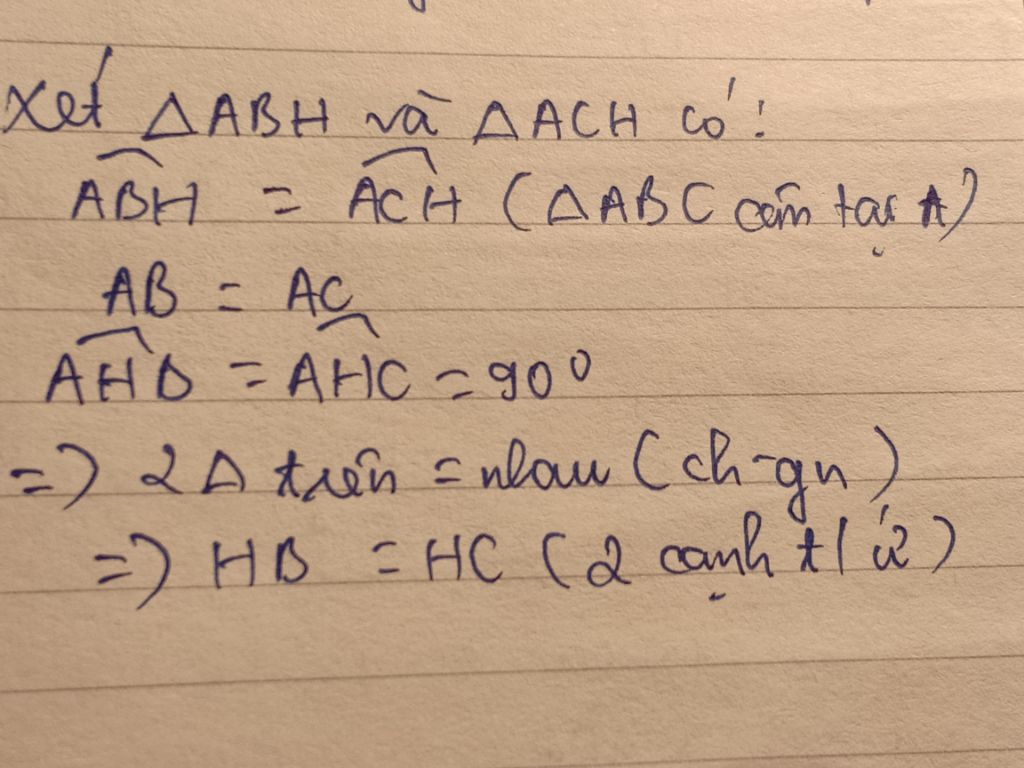 Xét △ABH và △ACH có:
∠ABH = ∠ACH (△ABC cân tại A)
AB = AC
∠AHB = ∠AHC = 90⁰
=> 2 △ trên = nhau (ch-gn)
=> HB = HC (2 cạnh t/ứ)